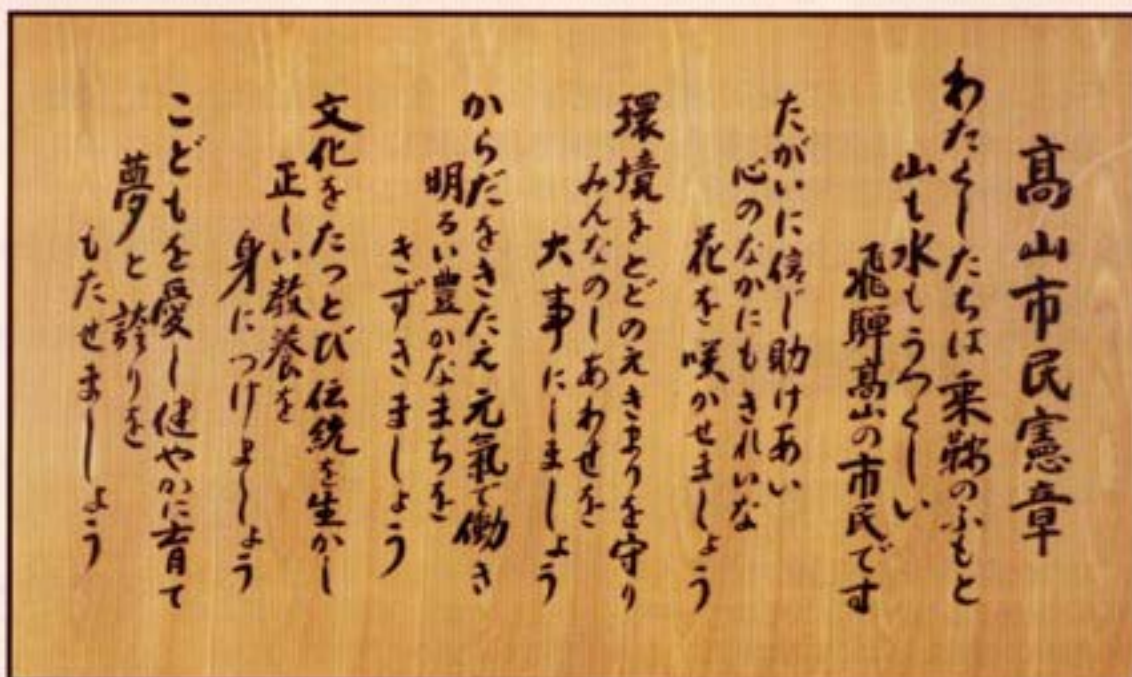 高山市民憲章
わたくしたちは乗鞍のふもと
山も水もうつくしい
飛騨高山の市民です
たがいに信じ助けあい
心のなかにもきれいな
花を咲かせましょう
環境をととのえきまりを守り
みんなのしあわせを
大事にしましょう
からだをきたえ元氣で働き
明るい豊かなまちを
きずきましょう
文化をたっとび伝統を生かし
正しい教養を
身につけましょう
こどもを愛し健やかに育て
夢と誇りを
もたせましょう